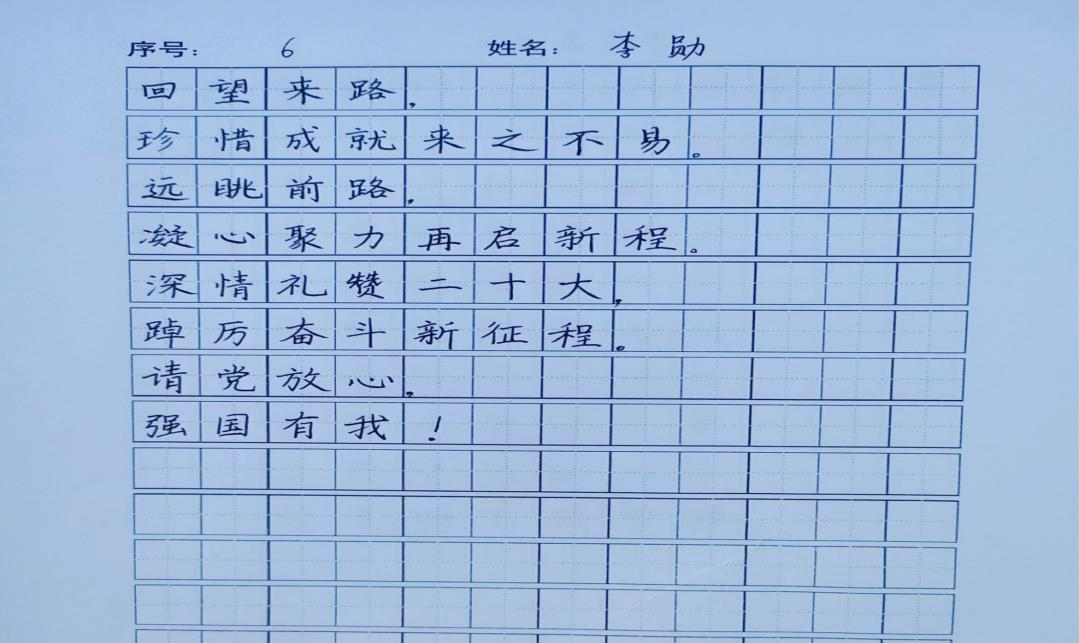 序号： 6 姓名： 李勋
回望来路，
珍惜成就来之不易。
远眺前路，
凝心聚力再启新程。
深情礼赞二十大，
踔厉奋斗新征程。
请党放心，
强国有我！